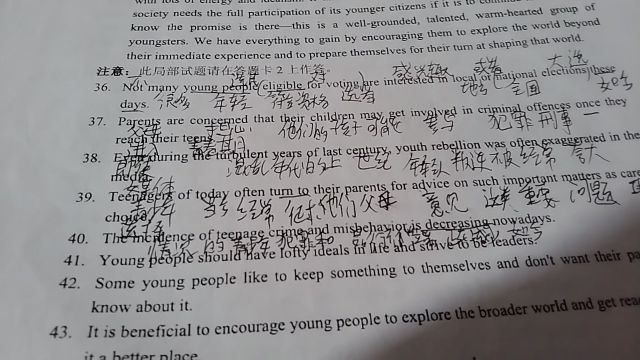 with lots of energy and
society needs the full participation of its younger citizens if it is to continue
know the promise is there—this is a well-grounded, talented, warm-hearted group of
youngsters. We have everything to gain by encouraging them to explore the world beyond
their immediate experience and to prepare themselves for their turn at shaping that world.
注意:此部分试题请在答题卡2上作答。
感兴趣 或者 大选
36. Not many young people eligible for voting are interested in local or national elections these
days. 很多 年轻 符合资格 选举 地方 全国 如今
37. Parents are concerned that their children may get involved in criminal offences once they
父母 关心 他们的孩子可能 参与 犯罪刑事 一
reach their teens.
38. Even during the turbulent years of last century, youth rebellion was often exaggerated in the
世纪 年轻 叛逆 被 经常 夸大
media.
媒体
39. Teenagers of today often turn to their parents for advice on such important matters as care
青少年 当今 经常 他们父母 意见 这样 重要 问题
choice.
选择
40. The incidence of teenage crime and misbehavior is decreasing nowadays.
青少年犯罪和 如今
41. Young people should have lofty ideals in life and strive to be leaders.
42. Some young people like to keep something to themselves and don't want their pa
know about it.
43. It is beneficial to encourage young people to explore the broader world and get rea
it a better place.